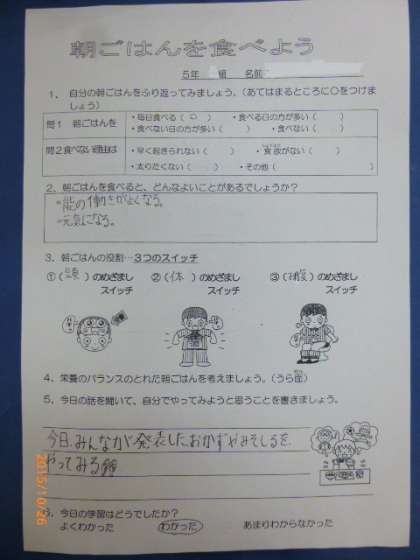 朝ごはんを食べよう
5年 組 名前
1. 自分の朝ごはんをふり返ってみましょう。(あてはまるところに○をつけましょう)
問1 朝ごはんを ・毎日食べる(○) ・食べる日の方が多い( )
・食べない日の方が多い( ) ・食べない( )
問2 食べない理由は ・早く起きられない( ) ・食欲がない( )
・太りたくない( ) ・その他( )
2. 朝ごはんを食べると、どんなよいことがあるでしょうか?
・脳の働きがよくなる。
・元気になる。
3. 朝ごはんの役割…3つのスイッチ
①(頭)のめざまし ②(体)のめざまし ③(お腹)のめざまし
スイッチ スイッチ スイッチ
4. 栄養のバランスのとれた朝ごはんを考えましょう。(うら面)
5. 今日の話を聞いて、自分でやってみようと思うことを書きましょう。
今日、みんなが発表したおかずやみそしるを、
やってみる
6. 今日の学習はどうでしたか?
よくわかった わかった あまりわからなかった
2015/10/26